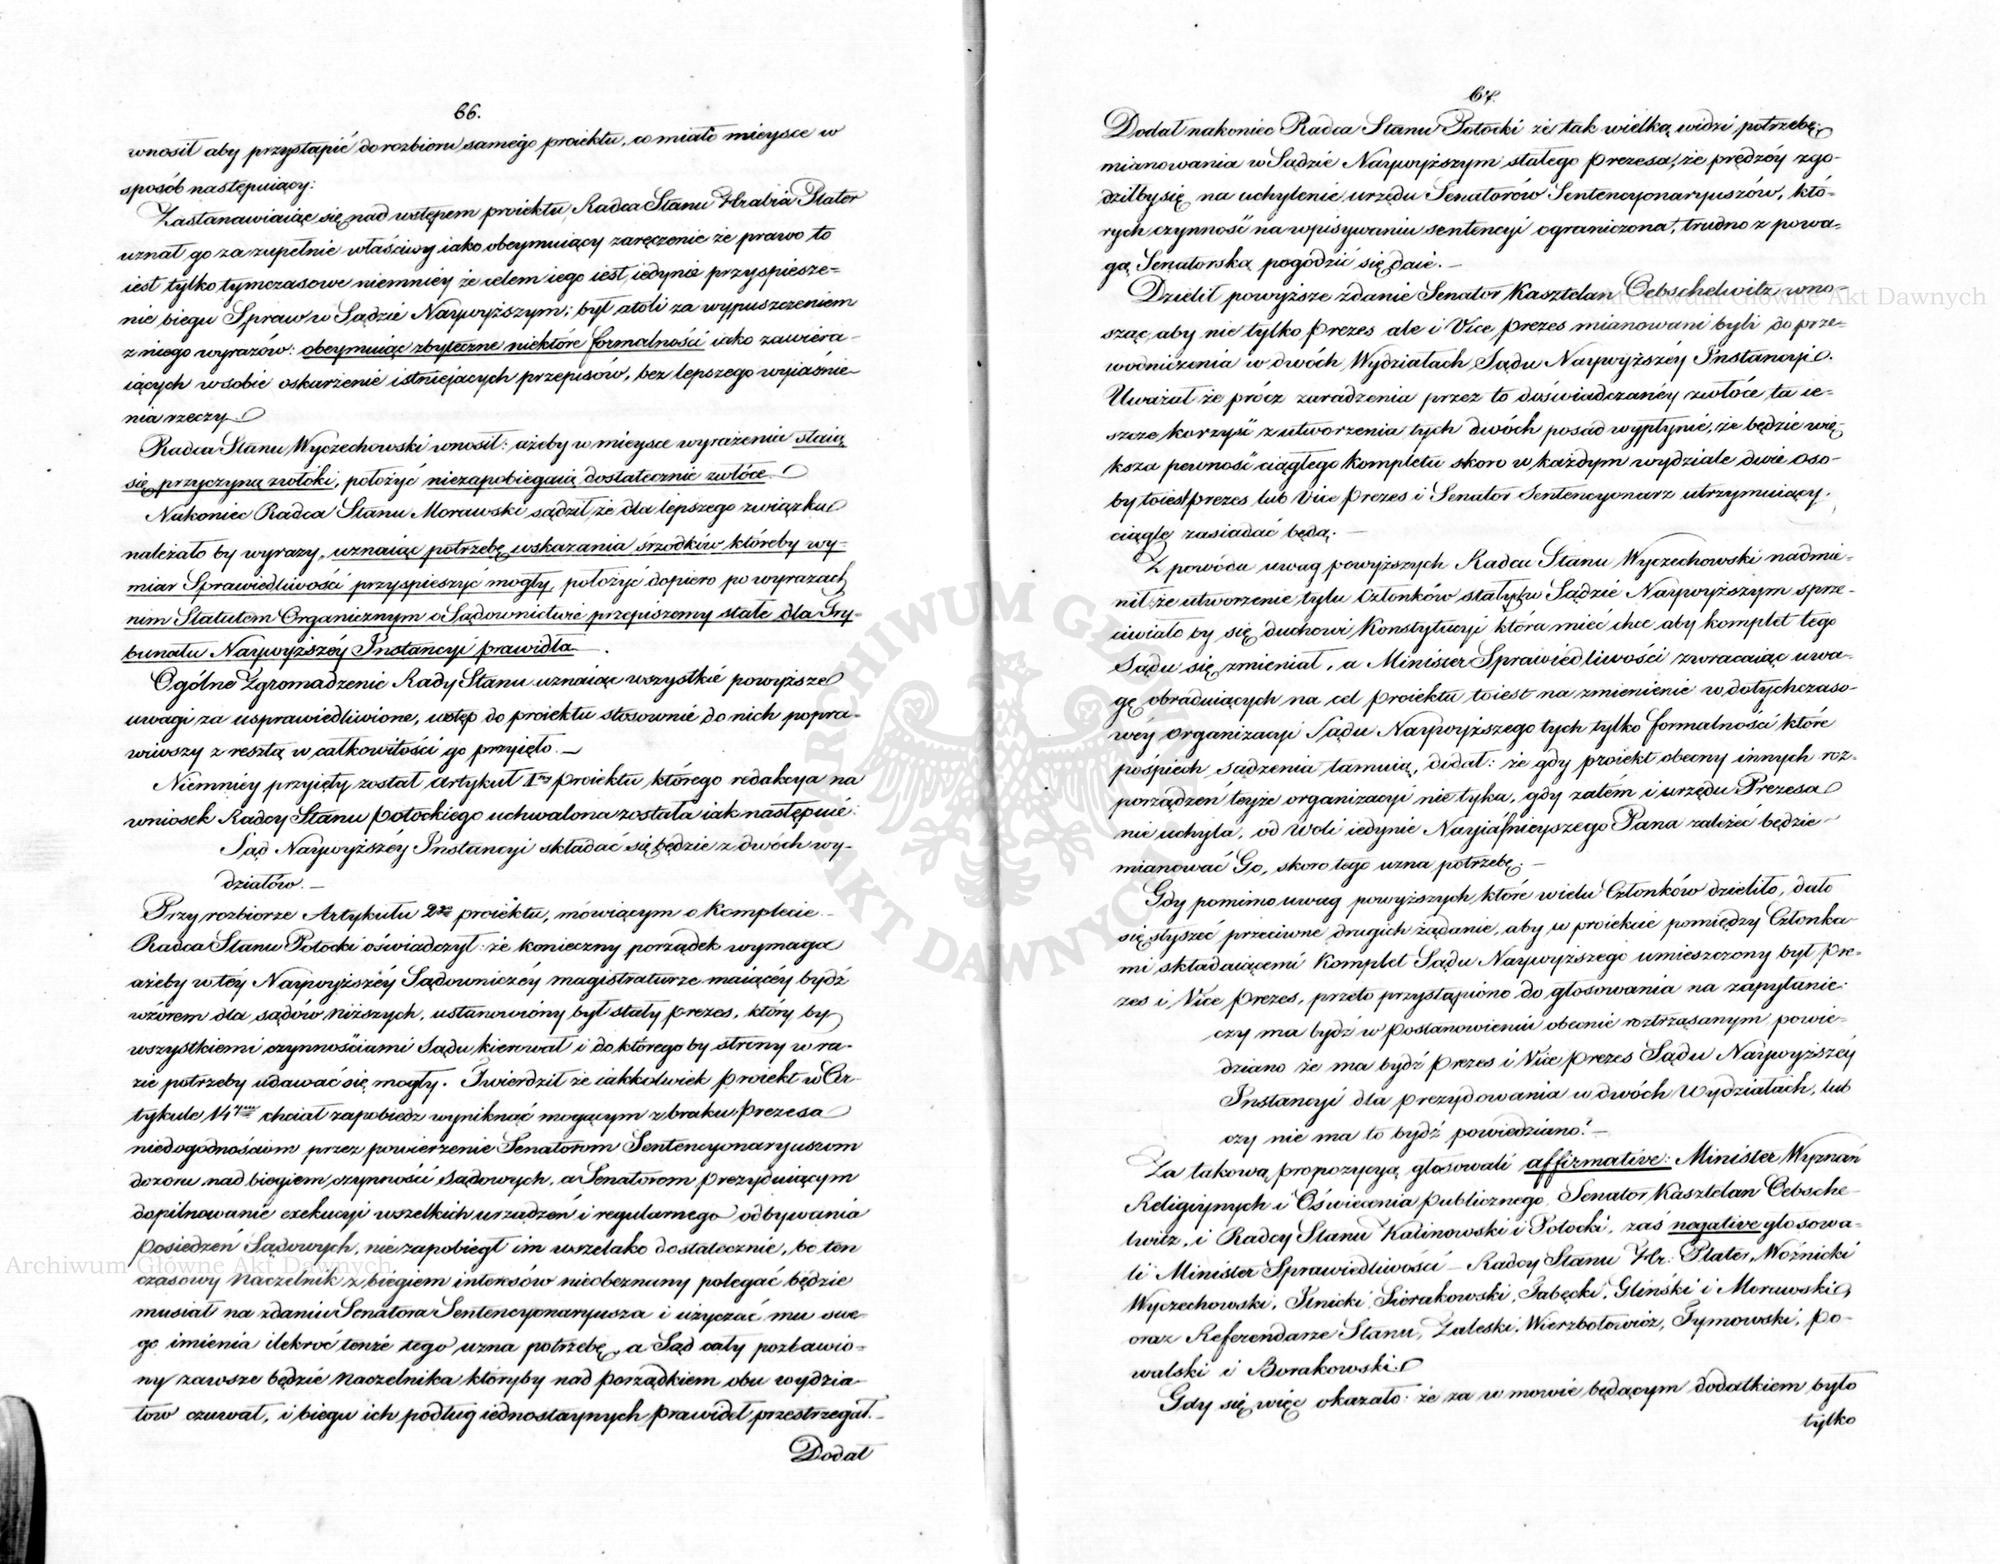 66.
wnosił aby przystąpić do rozbioru samego proiektu, co miało mieysce w
sposób następuiący:
Zastanawiaiąc się nad wstępem proiektu, Radca Stanu Hrabia Plater
uznał go za zupełnie właściwy iako obeymuiący zaręczenie że prawo to
iest tylko tymczasowe niemniey że celem iego iest iedynie przyspiesze-
nie biegu Spraw w Sądzie Naywyższym; był atoli za wypuszczeniem
z niego wyrazów: obeymuiąc zbyteczne niektóre formalności iako zawiera-
iących w sobie oskarżenie istniejacych przepisów, bez lepszego wyiaśnie-
nia rzeczy.
Radca Stanu Wyczechowski wnosił: ażeby w mieysce wyrażenia staią
się przyczyną zwłoki, położyć niezapobiegaią dostatecznie zwłóce.
Nakoniec Radca Stanu Morawski sądził że dla lepszego związku
należało by wyrazy, uznaiąc potrzebę wskazania śrzodków któreby wy-
miar Sprawiedliwości przyspieszyć mogły, położyć dopiero po wyrazach
nim Statutem Organicznym o Sądownictwie przepiszemy stałe dla Try-
bunału Naywyższéy Instancyi prawidła.
Ogólne Zgromadzenie Rady Stanu uznaiąc wszystkie powyższe
uwagi za usprawiedliwione, wstęp do proiektu stosownie do nich popra-
wiwszy z resztą w całkowitości go przyięto.—
Niemniey przyięty został artykuł 1szy proiektu którego redakcya na
wniosek Radcy Stanu Potockiego uchwalona została iak następuie:
Sąd Naywyższéy Instancyi składać się będzie z dwóch wy-
działów.—
Przy rozbiorze Artykułu 2go proiektu, mówiącym o Komplecie
Radca Stanu Potocki oświadczył: że konieczny porządek wymaga
ażeby w téy Naywyższéy Sądowniczéy magistraturze maiącéy bydź
wzórem dla sądów niższych, ustanowióny był stały prezes, który by
wszystkiemi czynnościami Sądu kierował i do którego by strony w ra-
zie potrzeby udawać się mogły. Twierdził że iakkolwiek proiekt w Ar-
tykule 14tym chciał zapobiedz wyniknąć mogącym z braku Prezesa
niedogodnościom przez powierzenie Senatorom Sentencyonaryuszom
dozoru nad biegiem czynności Sądowych, a Senatorom prezyduiącym
dopilnowanie exekucyi wszelkich urządzeń i regularnego odbywania
posiedzeń Sądowych, nie zapobiegł im wszelako dostatecznie, bo ten
czasowy Naczelnik z biegiem interesów nieobeznany polegać będzie
musiał na zdaniu Senatora Sentencyonaryusza i użyczać mu swe-
go imienia ilekroć tenże tego uzna potrzebę, a Sąd cały pozbawio-
ny zawsze będzie Naczelnika któryby nad porządkiem obu wydzia-
łów czuwał, i biegu ich podług iednostaynych prawideł przestrzegał.—
Dodał
67.
Dodał nakoniec Radca Stanu Potocki że tak wielką widzi potrzebę
mianowania w Sądzie Naywyższym stałego prezesa, że prędzéy zgo-
dziłby się na uchylenie urzędu Senatorów Sentencyonaryuszów, któ-
rych czynność na wpisywaniu sentencyi ograniczona, trudno z powa-
gą Senatorską pogodzić się daie.—
Dzielił powyższe zdanie Senator Kasztelan Oebschelwitz, wno-
sząc aby nie tylko prezes ale i Vice prezes mianowani byli do prze-
wodniczenia w dwóch Wydziałach Sądu Naywyższéy Instancyi.
Uważał że prócz zaradzenia przez to doświadczanéy zwłóce, ta ie-
szcze korzyść z utworzenia tych dwóch posad wypłynie, że będzie wię-
ksza pewność ciągłego Kompletu skoro w każdym wydziale dwie oso-
by toiest prezes lub Vice prezes i Senator Sentencyonarz utrzymuiący,
ciągle zasiadać będą.—
Z powodu uwag powyższych Radca Stanu Wyczechowski nadmie-
nił że utworzenie tylu Członków stałych w Sądzie Naywyższym sprze-
ciwiało by się duchowi Konstytucyi która mieć chce aby komplet tego
Sądu się zmieniał, a Minister Sprawiedliwości zwracaiąc uwa-
gę obraduiących na cel proiektu toiest na zmienienie w dotychczaso-
wéy organizacyi Sądu Naywyższego tych tylko formalności które
pośpiech sądzenia tamuią, dodał: że gdy proiekt obecny innych roz-
porządzeń teyże organizacyi nie tyka, gdy zatém i urzędu Prezesa
nie uchyla, od Woli iedynie Nayiaśnieyszego Pana zależeć będzie
mianować Go, skoro tego uzna potrzebę.—
Gdy pomimo uwag powyższych, które wielu Członków dzieliło, dało
się słyszeć przeciwne drugich żądanie, aby w proiekcie pomiędzy Członka-
mi składaiącemi Komplet Sądu Naywyższego umieszczony był Pre-
zes i Vice prezes, przeto przystąpióno do głosowania na zapytanie:
czy ma bydź w postanowieniu obecnie roztrząsanym powie-
dziano że ma bydź prezes i Vice prezes Sądu Naywyższéy
Instancyi dla prezydowania w dwóch Wydziałach, lub
czy nie ma to bydź powiedziano?—
Za takową propozycyą głosowali affirmative: Minister Wyznań
Religiynych i Oświecenia publicznego, Senator Kasztelan Oebsche-
lwitz, i Radcy Stanu Kalinowski i Potocki, zaś negative głosowa-
li Minister Sprawiedliwości – Radcy Stanu Hr: Plater, Woźnicki
Wyczechowski, Linicki Sierakowski, Fabęcki, Gliński i Morawski,
oraz Referendarze Stanu, Zaleski, Wierzbołowicz, Tymowski, Po-
walski i Borakowski.
Gdy się więc okazało: że za w mowie będącym dodatkiem było
tylko
Archiwum Główne Akt Dawnych
Archiwum Główne Akt Dawnych
ARCHIWUM GŁÓWNE AKT DAWNYCH